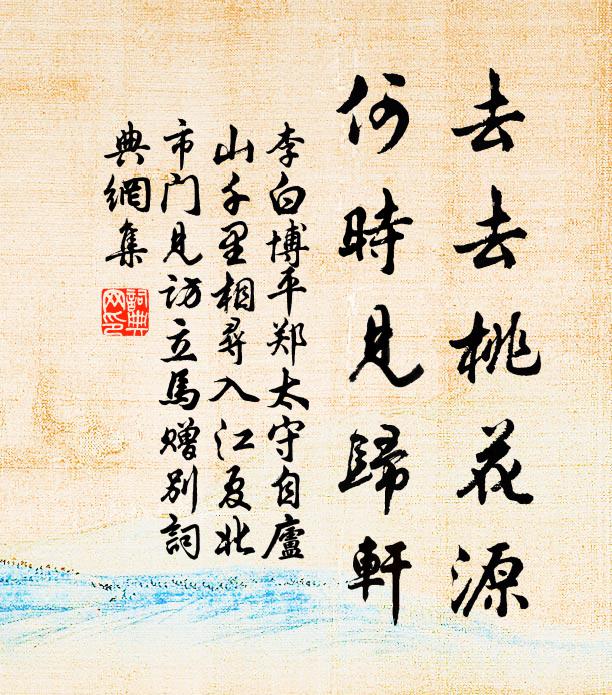 去去桃花源
何時見歸軒
李白博平郑太守自廬
山千里相尋入江夏北
市门見访立馬赠别詞
典網集
詞典
网印